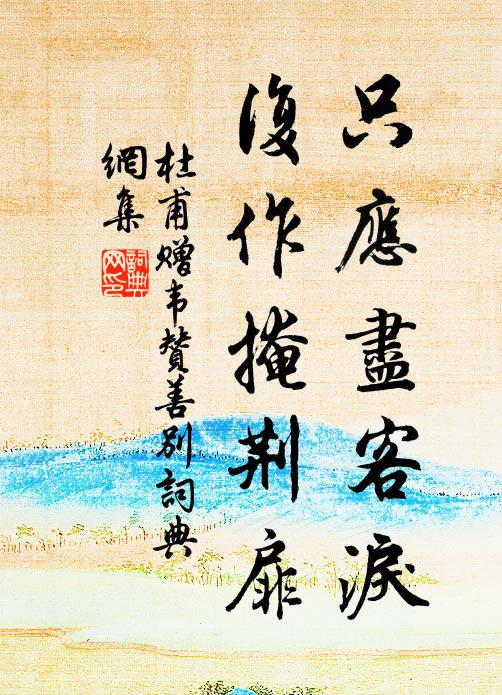 只應盡客淚
復作掩荆扉
杜甫贈韦賛善别詞典
網集
詞典
网印